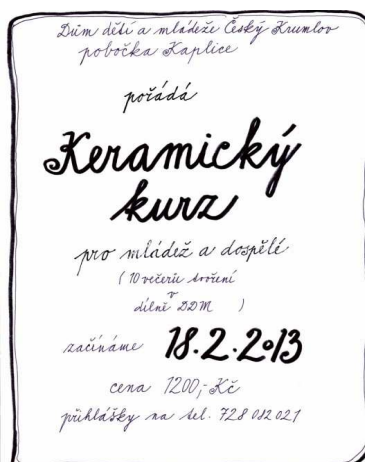 Dům dětí a mládeže Český Krumlov
pobočka Kaplice
pořádá
Keramický
kurz
pro mládež a dospělé
(10 večerů tvoření
v
dílně DDM )
začínáme 18.2.2013
cena 1200,-Kč
přihlášky na tel. 728 082 021